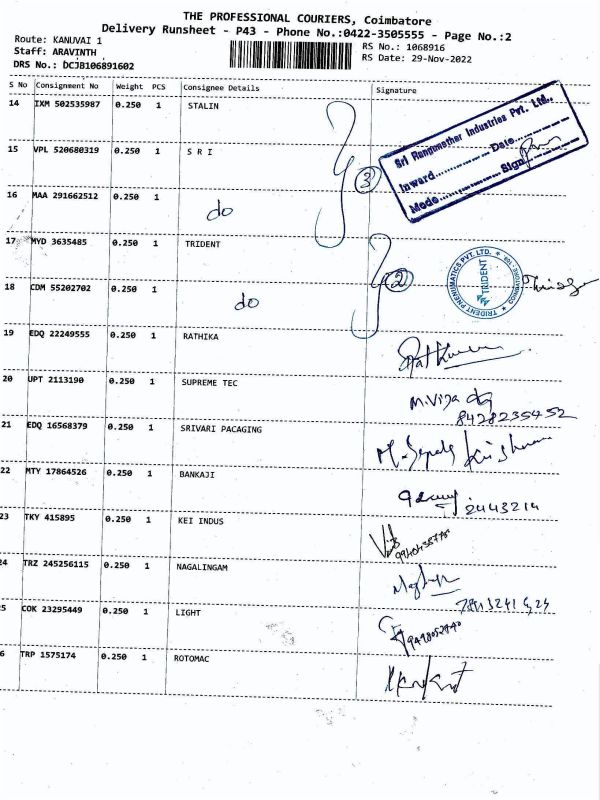 THE PROFESSIONAL COURIERS, Coimbatore
Delivery Runsheet - P43 - Phone No.:0422-3505555 - Page No.:2
Route: KANUVAI 1
RS No.: 1068916
Staff: ARAVINTH
RS Date: 29-Nov-2022
DRS No.: DCJB106891602
S No Consignment No Weight PCS Consignee Details Signature
14 IXM 502535987 0.250 1 STALIN
Sri Ranganathar Industries Pvt. Ltd.,
Inward............Date............
Mode............Sign............
15 VPL 520680319 0.250 1 S R I
3
16 MAA 291662512 0.250 1 do
17 MYD 3635485 0.250 1 TRIDENT
2
TRIDENT PNEUMATICS PVT. LTD.
TRIDENT
18 CDM 55202702 0.250 1 do
19 EDQ 22249555 0.250 1 RATHIKA
20 UPT 2113190 0.250 1 SUPREME TEC
8428235452
21 EDQ 16568379 0.250 1 SRIVARI PACAGING
22 MTY 17864526 0.250 1 BANKAJI
2443214
23 TKY 415895 0.250 1 KEI INDUS
24 TRZ 245256115 0.250 1 NAGALINGAM
5 COK 23295449 0.250 1 LIGHT
6 TRP 1575174 0.250 1 ROTOMAC